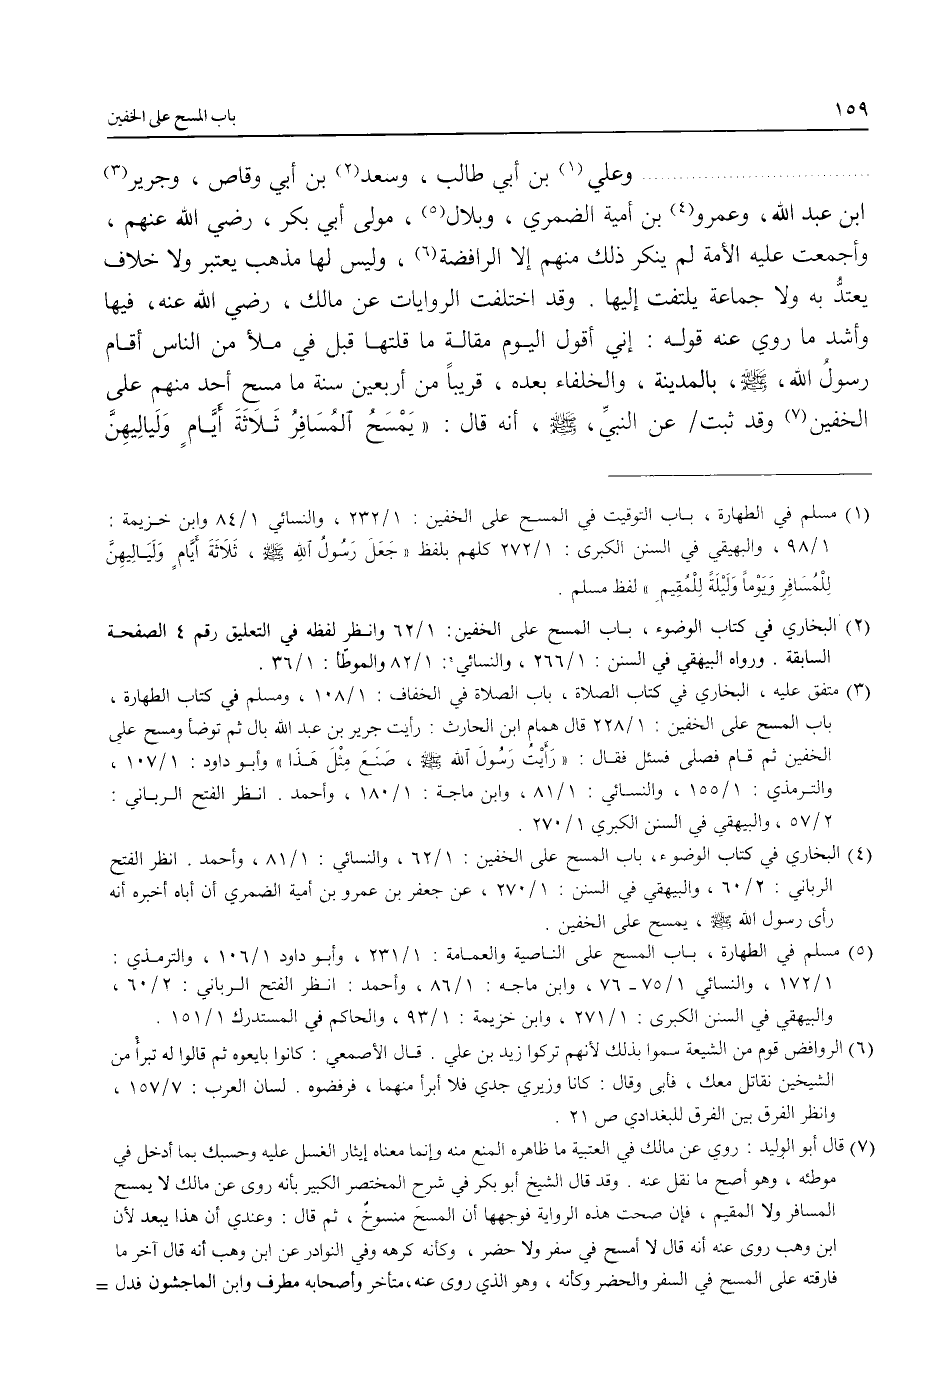 ١٥٩
باب المسح على الخفين
........................................ وعلي(١) بن أبي طالب ، وسعد(٢) بن أبي وقاص ، وجرير(٣)
ابن عبد الله، وعمرو(٤) بن أمية الضمري ، وبلال(٥) ، مولى أبي بكر ، رضي الله عنهم ،
وأجمعت عليه الأمة لم ينكر ذلك منهم إلا الرافضة(٦) ، وليس لها مذهب يعتبر ولا خلاف
يعتدُّ به ولا جماعة يلتفت إليها . وقد اختلفت الروايات عن مالك ، رضي الله عنه، فيها
وأشد ما روي عنه قوله : إني أقول اليوم مقالة ما قلتها قبل في ملأ من الناس أقام
رسولُ الله، ﷺ، بالمدينة ، والخلفاء بعده ، قريباً من أربعين سنة ما مسح أحد منهم على
الخفين(٧) وقد ثبت/ عن النبيِّ، ﷺ ، أنه قال : « يَمْسَحُ الْمُسَافِرُ ثَلَاثَةَ أَيَّامٍ وَلَيالِيهِنَّ
(١) مسلم في الطهارة ، باب التوقيت في المسح على الخفين : ٢٣٢/١ ، والنسائي ٨٤/١ وابن خزيمة :
٩٨/١ ، والبهيقي في السنن الكبرى : ٢٧٢/١ كلهم بلفظ « جَعَلَ رَسُولُ اللهِ ﷺ ، ثَلَاثَةَ أَيَّامٍ وَلَيَالِيهِنَّ
لِلْمُسَافِرِ وَيَوْماً وَلَيْلَةً لِلْمُقِيمِ » لفظ مسلم .
(٢) البخاري في كتاب الوضوء ، باب المسح على الخفين: ٦٢/١ وانظر لفظه في التعليق رقم ٤ الصفحة
السابقة . ورواه البيهقي في السنن : ٢٦٦/١ ، والنسائي: ٨٢/١ والموطّأ : ٣٦/١ .
(٣) متفق عليه ، البخاري في كتاب الصلاة ، باب الصلاة في الخفاف : ١٠٨/١ ، ومسلم في كتاب الطهارة ،
باب المسح على الخفين : ٢٢٨/١ قال همام ابن الحارث : رأيت جرير بن عبد الله بال ثم توضأ ومسح على
الخفين ثم قام فصلى فسئل فقال : « رَأَيْتُ رَسُولَ اللهِ ﷺ ، صَنَعَ مِثْلَ هَذَا » وأبو داود : ١٠٧/١ ،
والترمذي : ١٥٥/١ ، والنسائي : ٨١/١ ، وابن ماجة : ١٨٠/١ ، وأحمد . انظر الفتح الرباني :
٥٧/٢ ، والبيهقي في السنن الكبري ٢٧٠/١ .
(٤) البخاري في كتاب الوضوء، باب المسح على الخفين : ٦٢/١ ، والنسائي : ٨١/١ ، وأحمد . انظر الفتح
الرباني : ٦٠/٢ ، والبيهقي في السنن : ٢٧٠/١ ، عن جعفر بن عمرو بن أمية الضمري أن أباه أخبره أنه
رأى رسول الله ﷺ ، يمسح على الخفين .
(٥) مسلم في الطهارة ، باب المسح على الناصية والعمامة : ٢٣١/١ ، وأبو داود ١٠٦/١ ، والترمذي :
١٧٢/١ ، والنسائي ٧٥/١ - ٧٦ ، وابن ماجه : ٨٦/١ ، وأحمد : انظر الفتح الرباني : ٦٠/٢ ،
والبيهقي في السنن الكبرى : ٢٧١/١ ، وابن خزيمة : ٩٣/١ ، والحاكم في المستدرك ١٥١/١ .
(٦) الروافض قوم من الشيعة سموا بذلك لأنهم تركوا زيد بن علي . قال الأصمعي : كانوا بايعوه ثم قالوا له تبرأْ من
الشيخين نقاتل معك ، فأبى وقال : كانا وزيري جدي فلا أبرأ منهما ، فرفضوه . لسان العرب : ١٥٧/٧ ،
وانظر الفرق بين الفرق للبغدادي ص ٢١ .
(٧) قال أبو الوليد : روي عن مالك في العتبية ما ظاهره المنع منه وإنما معناه إيثار الغسل عليه وحسبك بما أدخل في
موطئه ، وهو أصح ما نقل عنه . وقد قال الشيخ أبو بكر في شرح المختصر الكبير بأنه روى عن مالك لا يمسح
المسافر ولا المقيم ، فإن صحت هذه الرواية فوجهها أن المسحَ منسوخٌ ، ثم قال : وعندي أن هذا يبعد لأن
ابن وهب روى عنه أنه قال لا أمسح في سفر ولا حضر ، وكأنه كرهه وفي النوادر عن ابن وهب أنه قال آخر ما
فارقته على المسح في السفر والحضر وكأنه ، وهو الذي روى عنه،متأخر وأصحابه مطرف وابن الماجشون فدل =